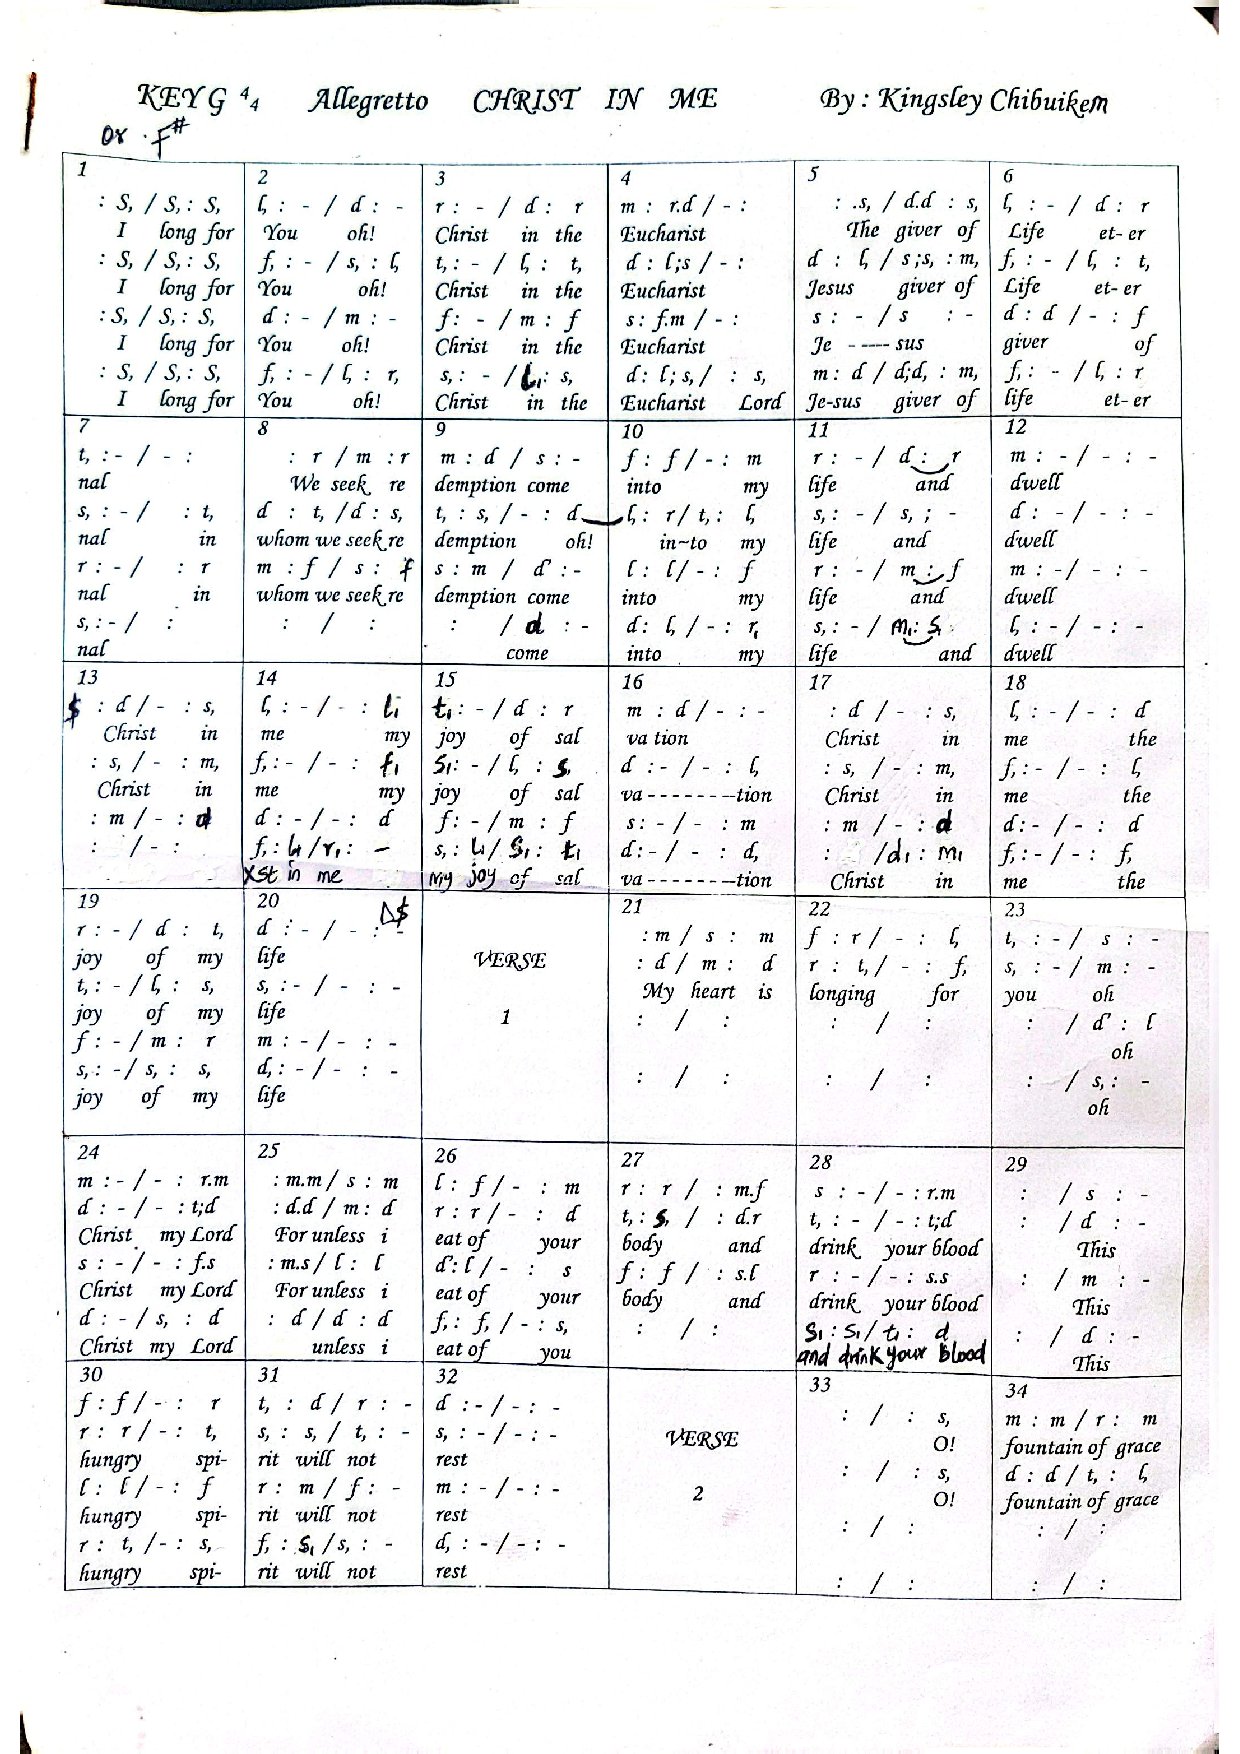 KEY G 4/4 Allegretto CHRIST IN ME By : Kingsley Chibuikem
Or . f#
1
: S, / S, : S,
I long for
: S, / S, : S,
I long for
: S, / S, : S,
I long for
: S, / S, : S,
I long for
2
l, : - / d : -
You oh!
f, : - / s, : l,
You oh!
d : - / m : -
You oh!
f, : - / l, : r,
You oh!
3
r : - / d : r
Christ in the
t, : - / l, : t,
Christ in the
f : - / m : f
Christ in the
s, : - / l, : s,
Christ in the
4
m : r.d / - :
Eucharist
d : l;s / - :
Eucharist
s : f.m / - :
Eucharist
d : l;s, / : s,
Eucharist Lord
5
: .s, / d.d : s,
The giver of
d : l, / s;s, : m,
Jesus giver of
s : - / s : -
Je ----- sus
m : d / d;d, : m,
Je-sus giver of
6
l, : - / d : r
Life et- er
f, : - / l, : t,
Life et- er
d : d / - : f
giver of
f, : - / l, : r
life et- er
7
t, : - / - :
nal
s, : - / : t,
nal in
r : - / : r
nal in
s, : - / :
nal
8
: r / m : r
We seek re
d : t, / d : s,
whom we seek re
m : f / s : f
whom we seek re
: / :
9
m : d / s : -
demption come
t, : s, / - : d
demption oh!
s : m / d' : -
demption come
: / d : -
come
10
f : f / - : m
into my
l, : r / t, : l,
in~to my
l : l / - : f
into my
d : l, / - : r,
into my
11
r : - / d : r
life and
s, : - / s, ; -
life and
r : - / m : f
life and
s, : - / m, : s,
life and
12
m : - / - : -
dwell
d : - / - : -
dwell
m : - / - : -
dwell
l, : - / - : -
dwell
13
$ : d / - : s,
Christ in
: s, / - : m,
Christ in
: m / - : d
: / - :
14
l, : - / - : l,
me my
f, : - / - : f,
me my
d : - / - : d
f, : l, / r, : -
Xst in me
15
t, : - / d : r
joy of sal
s, : - / l, : s,
joy of sal
f : - / m : f
s, : l, / s, : t,
my joy of sal
16
m : d / - : -
va tion
d : - / - : l,
va--------tion
s : - / - : m
d : - / - : d,
va--------tion
17
: d / - : s,
Christ in
: s, / - : m,
Christ in
: m / - : d
: / d, : m,
Christ in
18
l, : - / - : d
me the
f, : - / - : l,
me the
d : - / - : d
f, : - / - : f,
me the
19
r : - / d : t,
joy of my
t, : - / l, : s,
joy of my
f : - / m : r
s, : - / s, : s,
joy of my
20 D$
d : - / - : -
life
s, : - / - : -
life
m : - / - : -
d, : - / - : -
life
VERSE
1
21
: m / s : m
: d / m : d
My heart is
: / :
: / :
22
f : r / - : l,
r : t, / - : f,
longing for
: / :
: / :
23
t, : - / s : -
s, : - / m : -
you oh
: / d' : l
oh
: / s, : -
oh
24
m : - / - : r.m
d : - / - : t;d
Christ my Lord
s : - / - : f.s
Christ my Lord
d : - / s, : d
Christ my Lord
25
: m.m / s : m
: d.d / m : d
For unless i
: m.s / l : l
For unless i
: d / d : d
unless i
26
l : f / - : m
r : r / - : d
eat of your
d' : l / - : s
eat of your
f, : f, / - : s,
eat of you
27
r : r / : m.f
t, : s, / : d.r
body and
f : f / : s.l
body and
: / :
28
s : - / - : r.m
t, : - / - : t;d
drink your blood
r : - / - : s.s
drink your blood
s, : s, / t, : d
and drink your blood
29
: / s : -
: / d : -
This
: / m : -
This
: / d : -
This
30
f : f / - : r
r : r / - : t,
hungry spi-
l : l / - : f
hungry spi-
r : t, / - : s,
hungry spi-
31
t, : d / r : -
s, : s, / t, : -
rit will not
r : m / f : -
rit will not
f, : s, / s, : -
rit will not
32
d : - / - : -
s, : - / - : -
rest
m : - / - : -
rest
d, : - / - : -
rest
VERSE
2
33
: / : s,
O!
: / : s,
O!
: / :
: / :
34
m : m / r : m
fountain of grace
d : d / t, : l,
fountain of grace
: / :
: / :